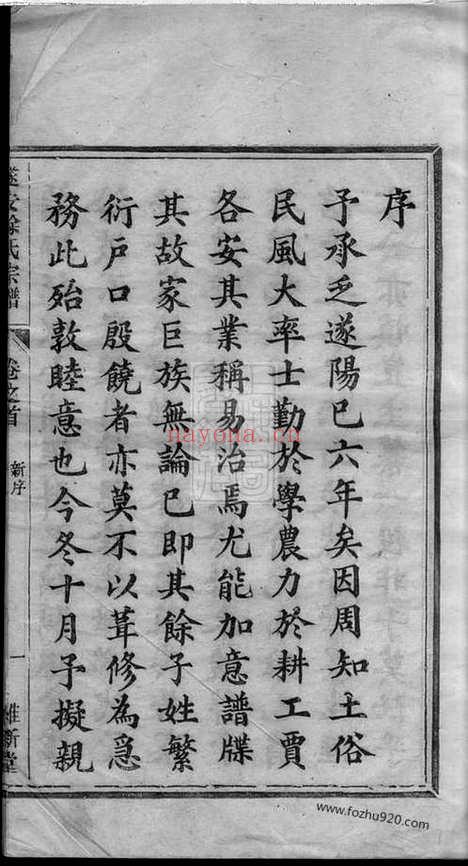 序
予承乏遂陽已六年矣因周知土俗
民風大率士勤於學農力於耕工賈
各安其業稱易治焉尤能加意譜牒
其故家巨族無論已即其餘子姓繁
衍戶口殷饒者亦莫不以葺修為急
務此殆敦睦意也今冬十月予擬親
遂安徐氏宗譜
卷之首
新序
一
維新堂
nayona.cn
www.fozhu920.com